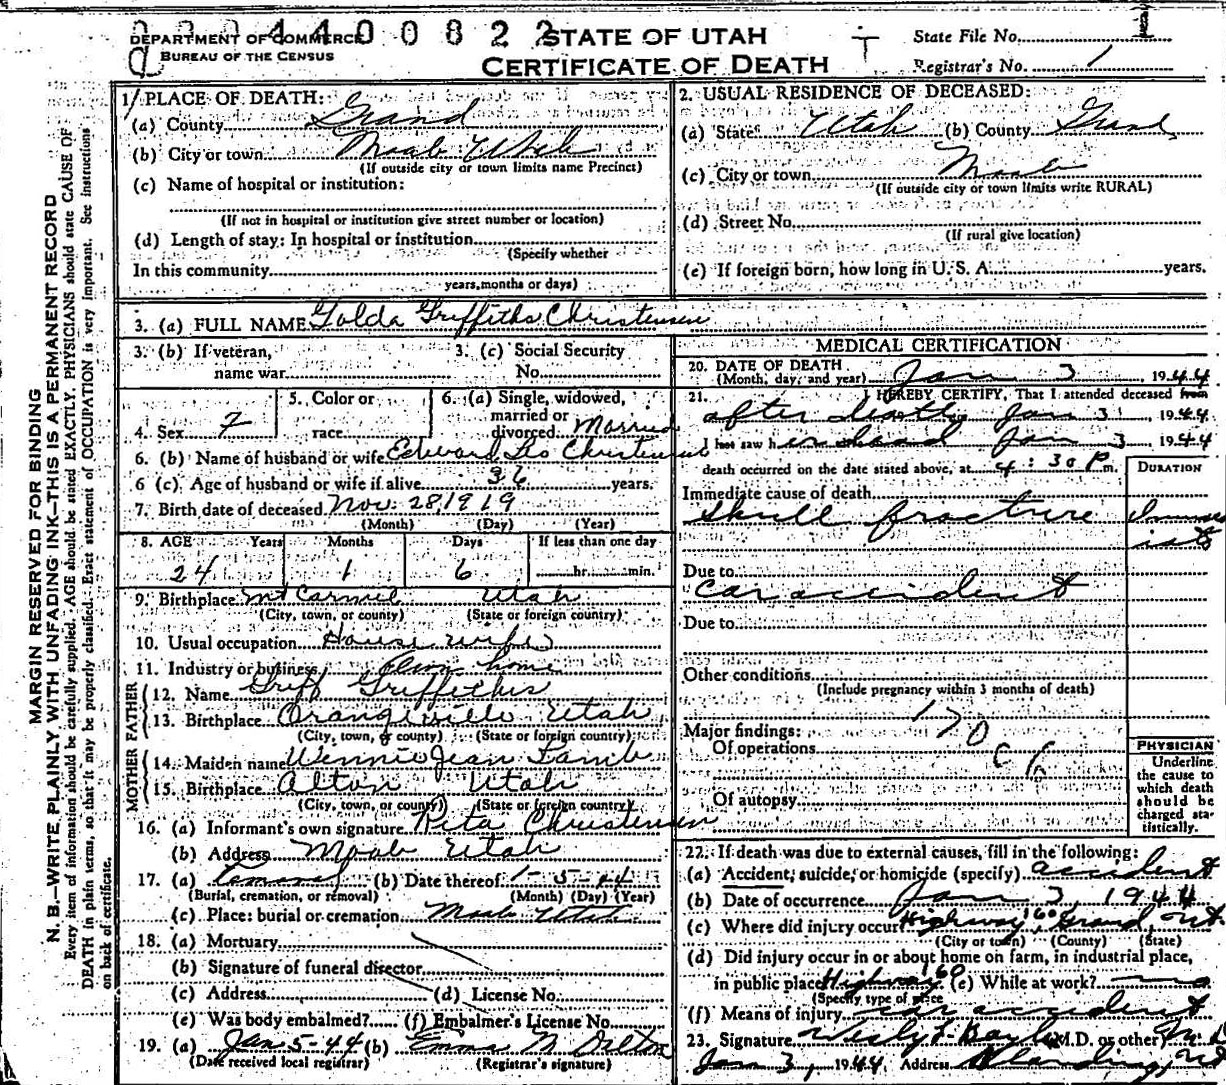 DEPARTMENT OF COMMERCE
BUREAU OF THE CENSUS
STATE OF UTAH
CERTIFICATE OF DEATH
State File No. 1
Registrar's No. 1
MARGIN RESERVED FOR BINDING
N. B.—WRITE PLAINLY WITH UNFADING INK—THIS IS A PERMANENT RECORD
Every item of information should be carefully supplied. AGE should be stated EXACTLY. PHYSICIANS should state CAUSE OF
DEATH in plain terms, so that it may be properly classified. Exact statement of OCCUPATION is very important. See instructions
on back of certificate.
1. PLACE OF DEATH:
(a) County Grand
(b) City or town Moab Utah
(If outside city or town limits name Precinct)
(c) Name of hospital or institution:
(If not in hospital or institution give street number or location)
(d) Length of stay: In hospital or institution
(Specify whether
In this community
years, months or days)
2. USUAL RESIDENCE OF DECEASED:
(a) State Utah (b) County Grand
(c) City or town Moab
(If outside city or town limits write RURAL)
(d) Street No.
(If rural give location)
(e) If foreign born, how long in U. S. A. years.
3. (a) FULL NAME Golda Griffiths Christensen
3. (b) If veteran, name war
3. (c) Social Security No.
4. Sex F
5. Color or race
6. (a) Single, widowed, married or divorced Married
6. (b) Name of husband or wife Edward Leo Christensen
6 (c) Age of husband or wife if alive 36 years.
7. Birth date of deceased Nov. 28, 1919
(Month) (Day) (Year)
8. AGE Years Months Days If less than one day
24 1 6 hr. min.
9. Birthplace Mt Carmel Utah
(City, town, or county) (State or foreign country)
10. Usual occupation House wife
11. Industry or business Own home
FATHER
12. Name Griff Griffiths
13. Birthplace Orangeville Utah
(City, town, or county) (State or foreign country)
MOTHER
14. Maiden name Wennie Jean Lamb
15. Birthplace Alton Utah
(City, town, or county) (State or foreign country)
16. (a) Informant's own signature Rita Christensen
(b) Address Moab Utah
17. (a) Removal (b) Date thereof 1-5-44
(Burial, cremation, or removal) (Month) (Day) (Year)
(c) Place: burial or cremation Moab Utah
18. (a) Mortuary
(b) Signature of funeral director
(c) Address (d) License No.
(e) Was body embalmed? (f) Embalmer's License No.
19. (a) Jan 5-44 (b) Emma M. Dalton
(Date received local registrar) (Registrar's signature)
MEDICAL CERTIFICATION
20. DATE OF DEATH
(Month, day, and year) Jan 3, 1944
21. I HEREBY CERTIFY, That I attended deceased from
after death Jan 3 1944
I last saw her dead Jan 3, 1944
death occurred on the date stated above, at 4:30 P m.
DURATION
Immediate cause of death
Skull fracture
Due to
Car accident
Due to
Other conditions
(Include pregnancy within 3 months of death)
170
Major findings:
Of operations
Of autopsy
PHYSICIAN
Underline
the cause to
which death
should be
charged sta-
tistically.
22. If death was due to external causes, fill in the following:
(a) Accident, suicide, or homicide (specify) accident
(b) Date of occurrence Jan 3, 1944
(c) Where did injury occur? Highway 160, Grand, Ut.
(City or town) (County) (State)
(d) Did injury occur in or about home on farm, in industrial place,
in public place? Highway 160 (e) While at work? no
(Specify type of place
(f) Means of injury car accident
23. Signature M.D. or other
Jan 3, 1944 Address Blanding, Ut